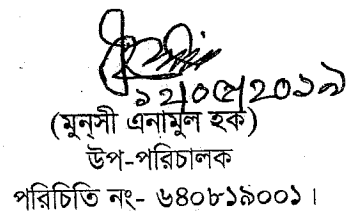 ১২/০৫/২০১৯
(মুন্সী এনামুল হক)
উপ-পরিচালক
পরিচিতি নং- ৬৪০৮১৯০০১।